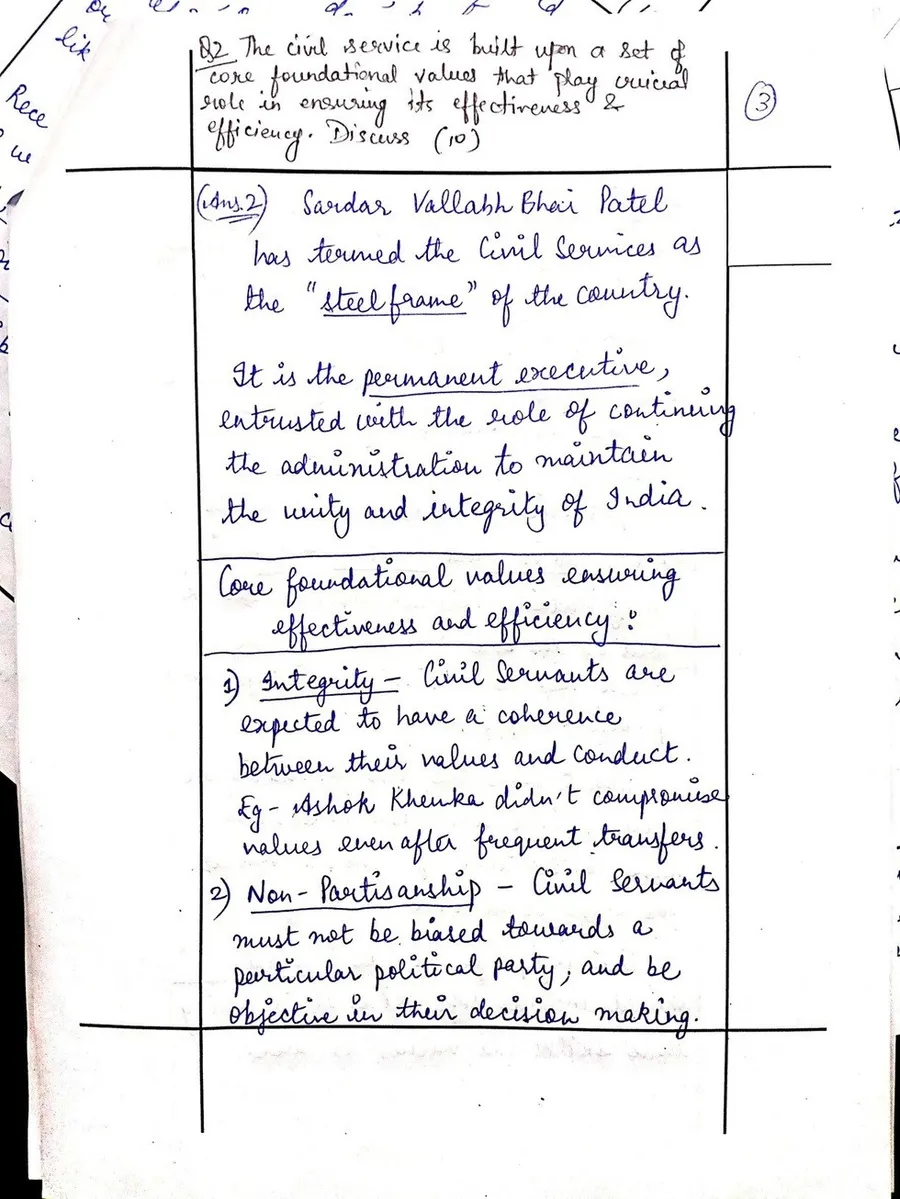 or
lik
Rece
Q2 The civil service is built upon a set of
core foundational values that play crucial
role in ensuring its effectiveness &
efficiency. Discuss (10)
3
(Ans.2) Sardar Vallabh Bhai Patel
has termed the Civil Services as
the "steel frame" of the country.
It is the permanent executive,
entrusted with the role of continuing
the administration to maintain
the unity and integrity of India.
Core foundational values ensuring
effectiveness and efficiency:
1) Integrity – Civil Servants are
expected to have a coherence
between their values and conduct.
Eg – Ashok Khemka didn't compromise
values even after frequent transfers.
2) Non-Partisanship – Civil Servants
must not be biased towards a
particular political party, and be
objective in their decision making.